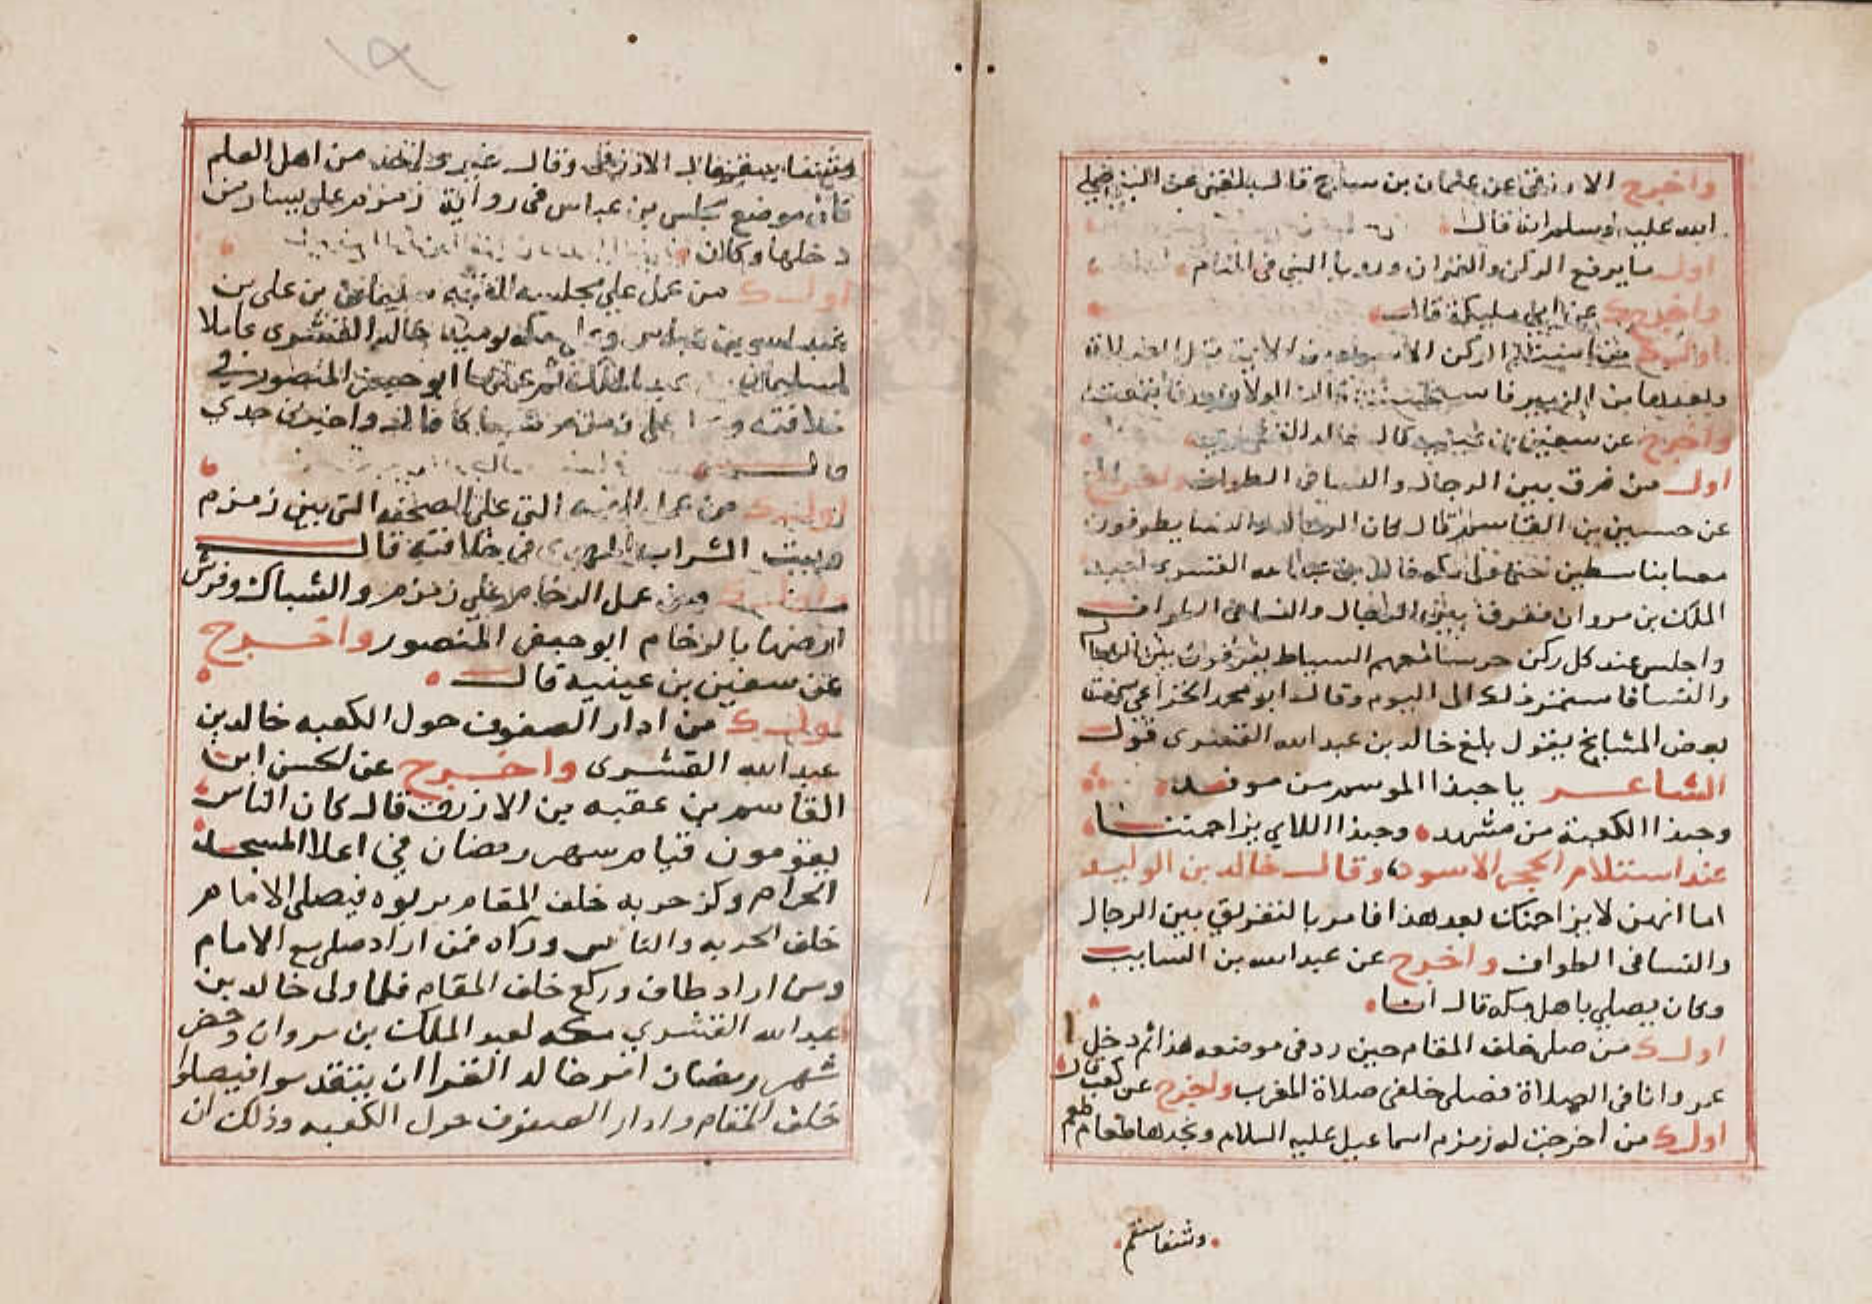 واخرج الازرقي عن عثمان بن ساج قال بلغني عن النبي صلى
الله عليه وسلم انه قال
اول ما يرفع الركن والقران ورويا النبي في المنام
واخرج عن ابن ابي مليكة قال
اول من استلم الركن الاسود من الائمة قبل الصلاة
وبعدها ابن الزبير فاستحسنت ذلك الولاة بعده فاتبعته
واخرج عن سفين بن عيينه قال خالد القسري
اول من فرق بين الرجال والنسا في الطواف واخرج
عن حسين بن القاسم قال كان الرجال والنسا يطوفون
معا حتى ولي مكه خالد بن عبد الله القسري لعبد
الملك بن مروان ففرق بين الرجال والنسا في الطواف
واجلس عند كل ركن حرسا معهم السياط يفرقون بين الرجال
والنسا فاستمر ذلك الى اليوم وقال ابو محمد الخزاعي سمعت
بعض المشايخ يقول بلغ خالد بن عبد الله القسري قول
الشاعر يا حبذا الموسم من موفد
وحبذا الكعبة من مشهد وحبذا اللاي يزاحمننا
عند استلام الحجر الاسود وقال خالد بن الوليد
اما انهن لا يزاحمنك بعد هذا فامر بالتفريق بين الرجال
والنسا في الطواف واخرج عن عبد الله بن السايب
وكان يصلي باهل مكه قال انا
اول من صلى خلف المقام حين رد في موضعه هذا ثم دخل
عمر وانا في الصلاة فصلى خلفي صلاة المغرب واخرج عن كعب قال
اول من اخرجت له زمزم اسماعيل عليه السلام ونجدها طعام طعم
وشفا سقم
وشفا سقم قال الازرقي وقال غير واحد من اهل العلم
كان موضع مجلس بن عباس في زواية زمزم على يسار من
دخلها وكان
اول من عمل على مجلسه القبه سليمان بن علي بن
عبد الله بن عباس وعلى مكه يوميذ خالد القسري عاملا
لسليمان بن عبد الملك ثم عملها ابو جعفر المنصور في
خلافته وعمل على زمزم شباكا قال واخبرني جدي
قال
اول من عمل القبه التي على الصحفه التي بين زمزم
وبيت الشراب المهدي في خلافته قال
واول من عمل الرخام على زمزم والشباك وفرش
ارضها بالرخام ابو جعفر المنصور واخرج
عن سفين بن عيينه قال
اول من ادار الصفوف حول الكعبه خالد بن
عبد الله القشرى واخرج عن لحسن ابن
القاسم بن عقبه بن الازرق قال كان الناس
يقومون قيام شهر رمضان في اعلا المسجد
الحرام وركز حربه خلف المقام بربوه فيصلى الامام
خلف الحربه والناس وراه فمن اراد صلى مع الامام
ومن اراد طاف وركع خلف المقام فلما ولى خالد بن
عبد الله القشري مكه لعبد الملك بن مروان وحضر
شهر رمضان امر خالد القرا ان يتقدموا فيصلوا
خلف المقام وادار الصفوف حول الكعبه وذلك ان